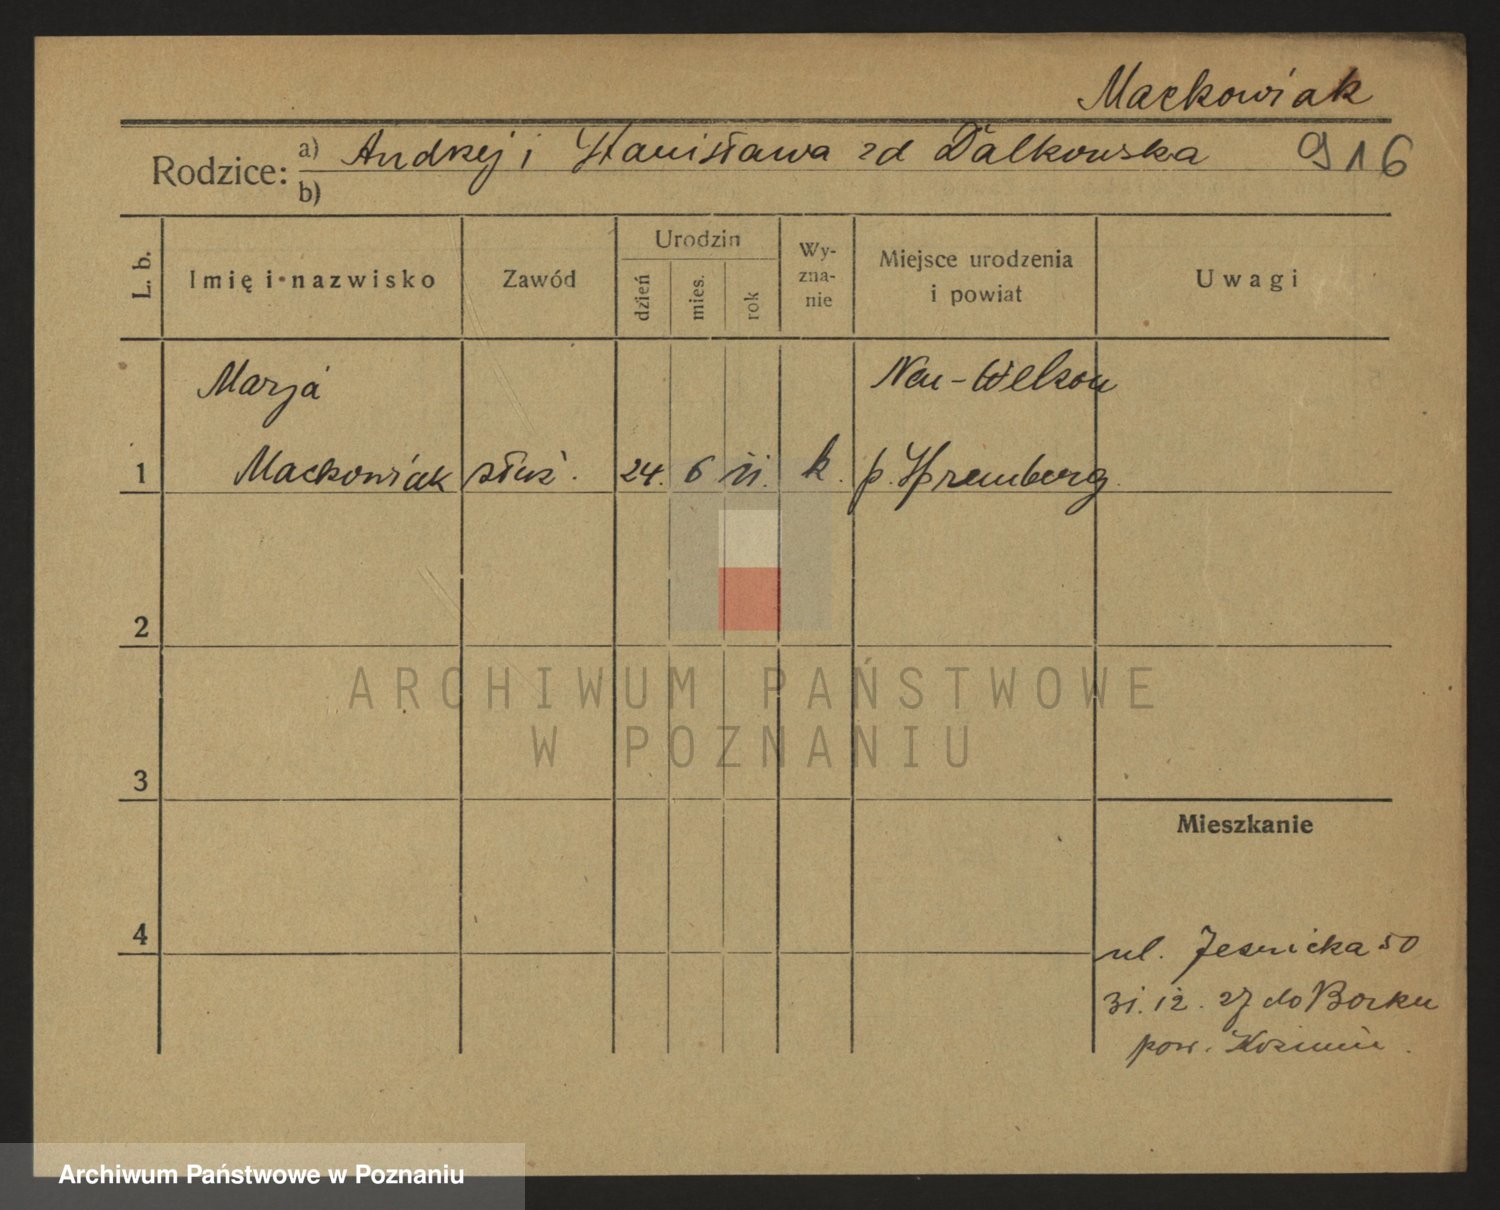 Maćkowiak
Rodzice: a) Andrzej i Stanisława zd Dalkowska 916
b)
L. b. Imię i nazwisko Zawód Urodzin dzień mies. rok Wyznanie Miejsce urodzenia i powiat Uwagi
Marja Neu-Welkou
1 Maćkowiak służ. 24. 6 11. k. p. Spremberg
2
ARCHIWUM PAŃSTWOWE
W POZNANIU
3
Mieszkanie
4 ul. 50
31. 12. 27 do Borku
pow. Koźmin.
Archiwum Państwowe w Poznaniu